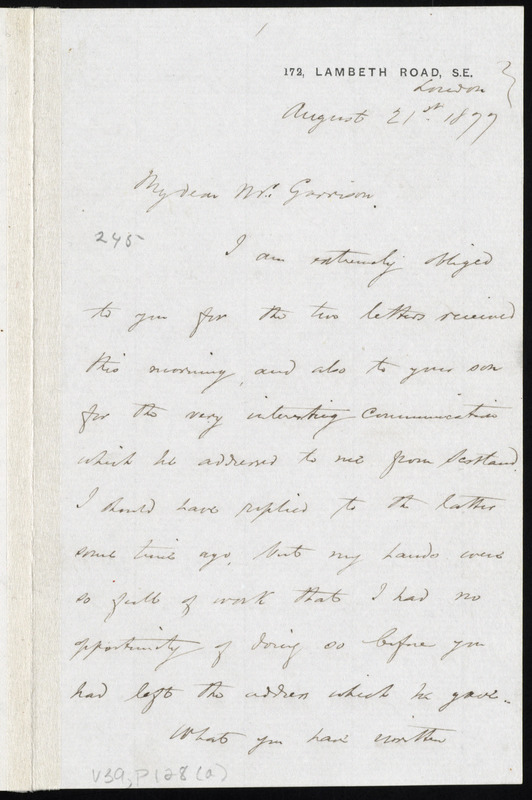 172, LAMBETH ROAD, S.E.
London
August 21st. 1877
My dear Mr. Garrison.
245
I am extremely obliged
to you for the two letters received
this morning, and also to your son
for the very interesting communication
which he addressed to me from Scotland.
I should have replied to the latter
some time ago, but my hands were
so full of work that I had no
opportunity of doing so before you
had left the address which he gave.
What you have written
V39, P128 (a)